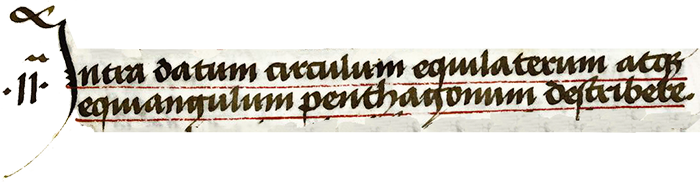 ·11·
Intra datum circulum equilaterum atqꝫ
equiangulum penthagonum deſcribere.